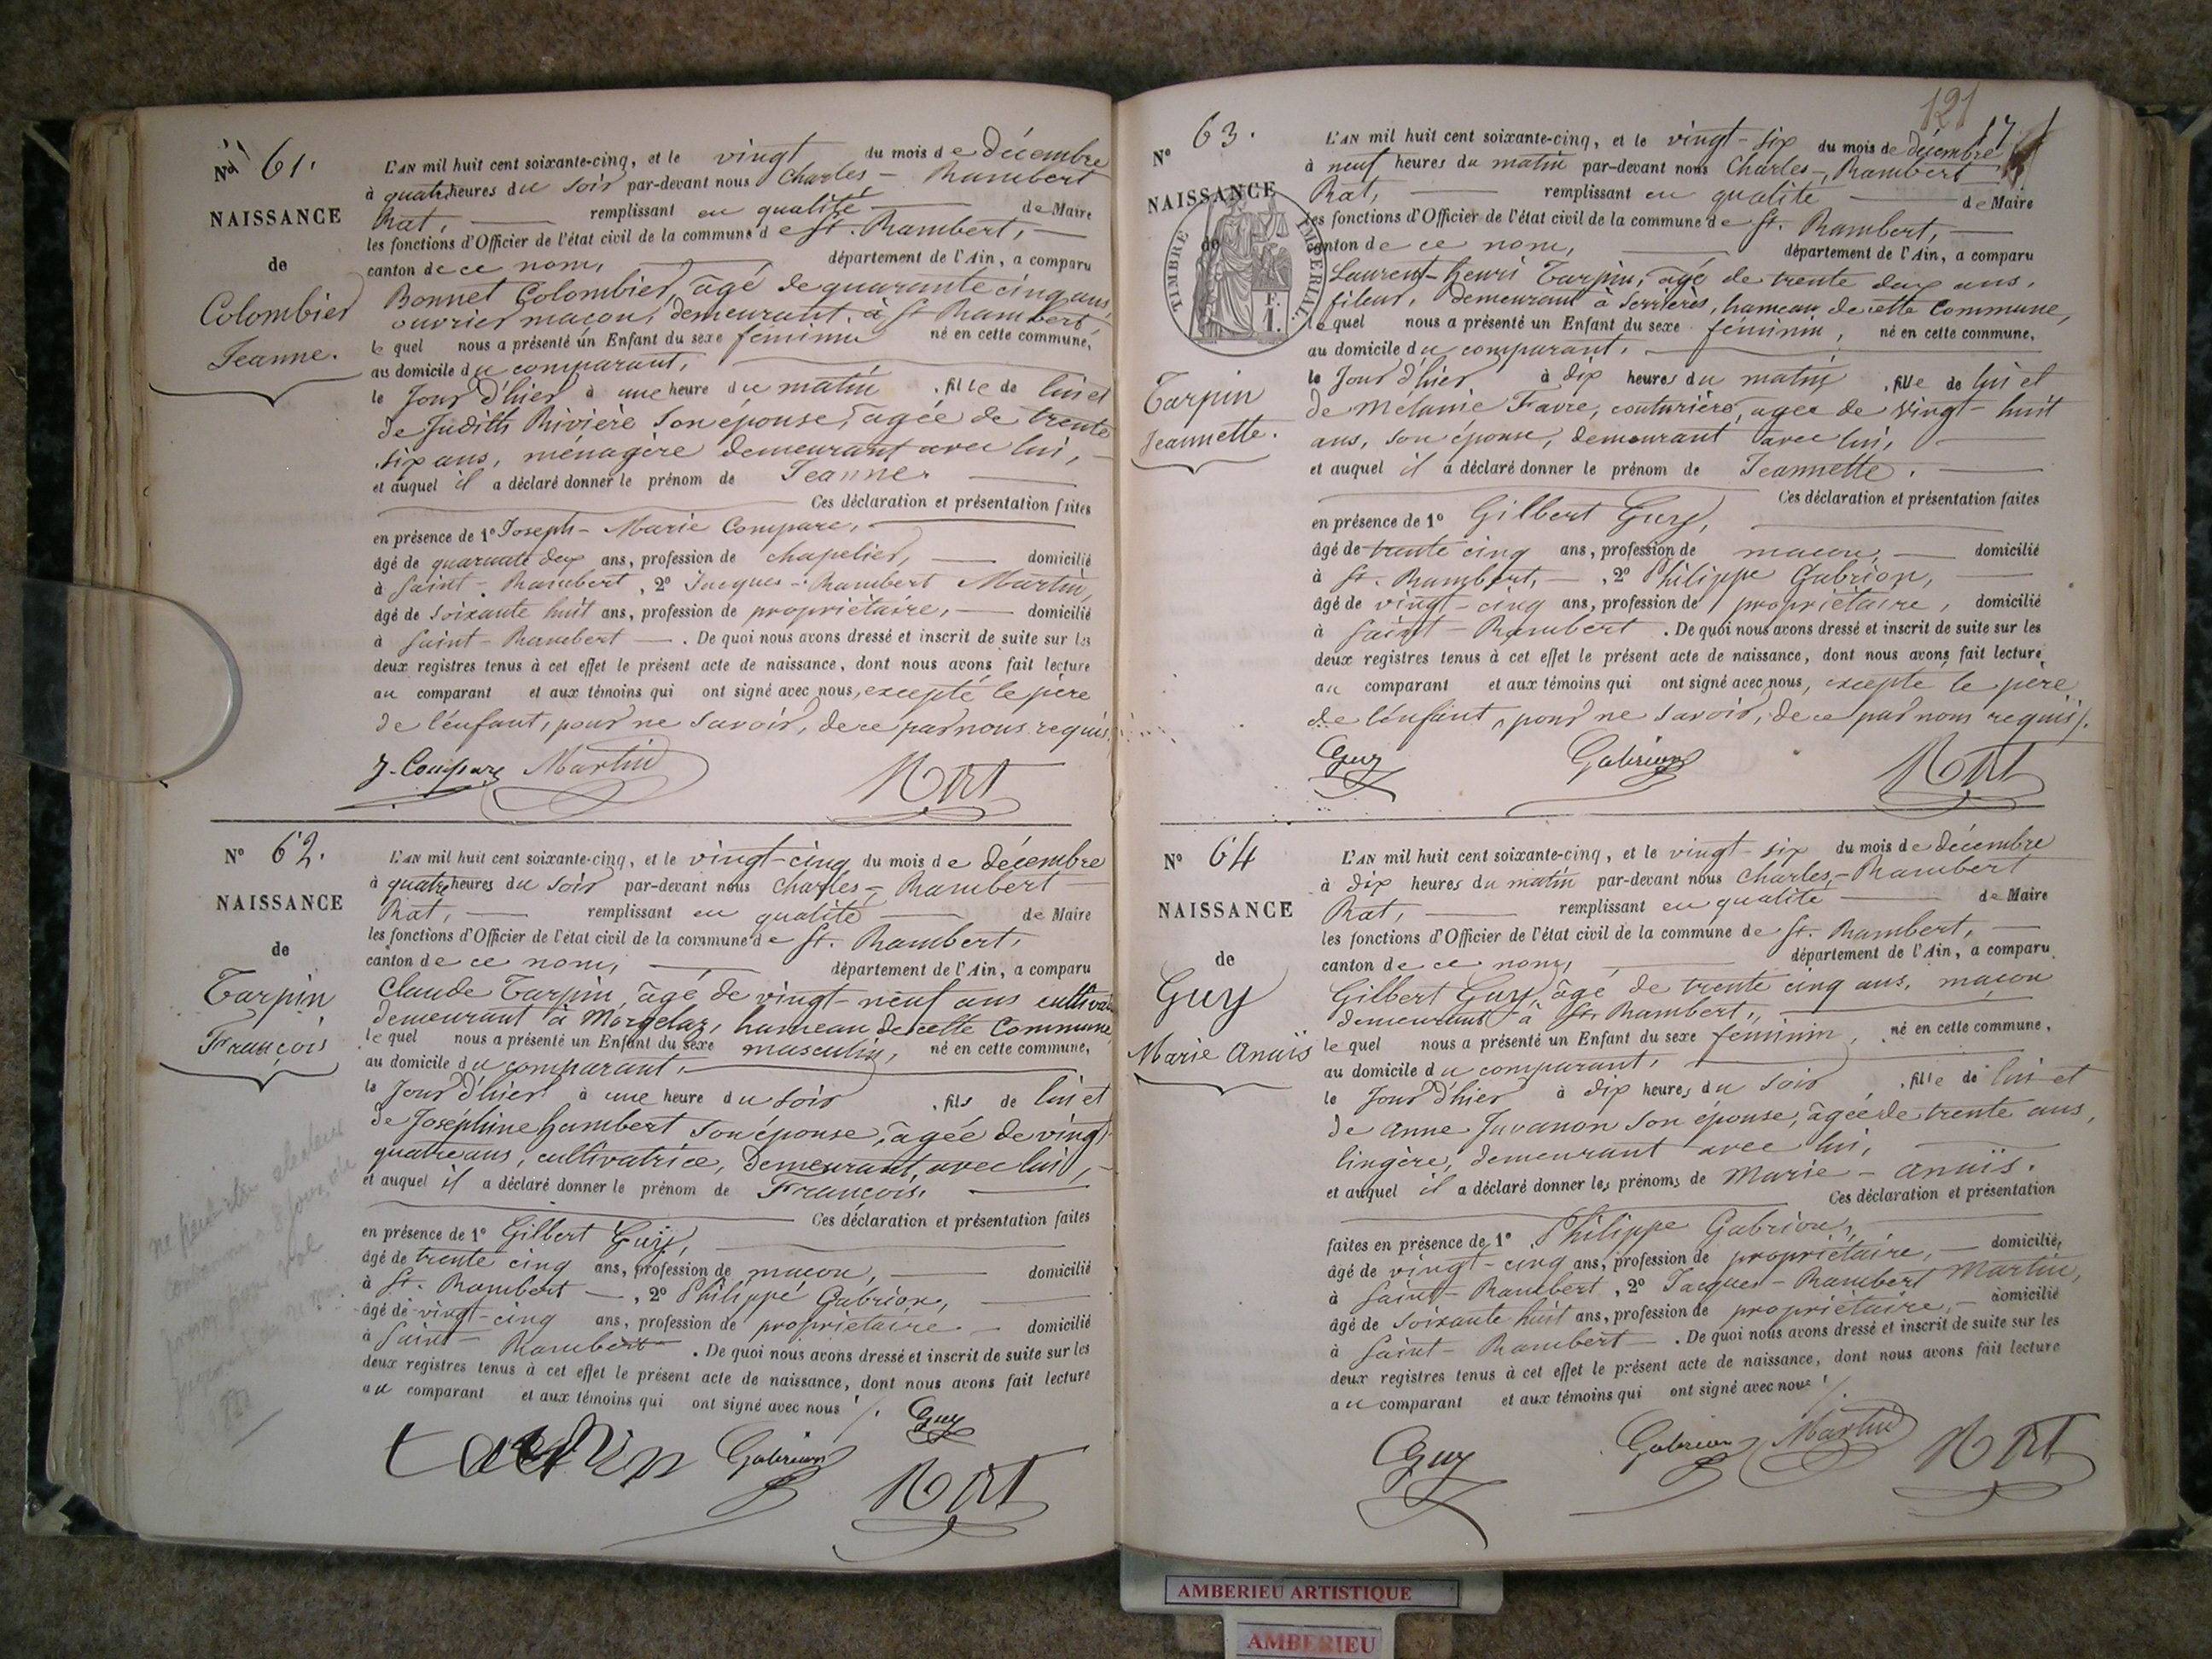 No 61.
NAISSANCE
de
Colombier
Jeanne.
L'AN mil huit cent soixante-cinq, et le vingt du mois de décembre
à quatre heures du soir par-devant nous Charles-Rambert
Rat, remplissant en qualité de Maire
les fonctions d'Officier de l'état civil de la commune de St. Rambert,
canton de ce nom, département de l'Ain, a comparu
Bonnet Colombier, âgé de quarante cinq ans,
ouvrier maçon, demeurant à St Rambert,
lequel nous a présenté un Enfant du sexe féminin né en cette commune,
au domicile du comparant,
le Jour d'hier à une heure du matin, fille de lui et
de Judith Rivière son épouse, âgée de trente
six ans, ménagère demeurant avec lui,
et auquel il a déclaré donner le prénom de Jeanne.
Ces déclaration et présentation faites
en présence de 1º Joseph-Marie Compare,
âgé de quarante deux ans, profession de chapelier, domicilié
à Saint-Rambert, 2º Jacques-Rambert Martin,
âgé de soixante huit ans, profession de propriétaire, domicilié
à Saint-Rambert. De quoi nous avons dressé et inscrit de suite sur les
deux registres tenus à cet effet le présent acte de naissance, dont nous avons fait lecture
au comparant et aux témoins qui ont signé avec nous, excepté le père
de l'enfant, pour ne savoir, de ce par nous requis.
J. Compare Martin Rat
Nº 62.
NAISSANCE
de
Tarpin
François
L'AN mil huit cent soixante-cinq, et le vingt-cinq du mois de décembre
à quatre heures du soir par-devant nous Charles-Rambert
Rat, remplissant en qualité de Maire
les fonctions d'Officier de l'état civil de la commune de St. Rambert,
canton de ce nom, département de l'Ain, a comparu
Claude Tarpin, âgé de vingt-neuf ans
demeurant à Morgelaz, hameau de cette Commune
lequel nous a présenté un Enfant du sexe masculin, né en cette commune,
au domicile du comparant,
le Jour d'hier à une heure du soir, fils de lui et
de Joséphine Humbert son épouse, âgée de vingt
quatre ans, cultivatrice, demeurant avec lui,
et auquel il a déclaré donner le prénom de François.
Ces déclaration et présentation faites
en présence de 1º Gilbert Guy,
âgé de trente cinq ans, profession de maçon, domicilié
à St. Rambert, 2º Philippe Gabrion,
âgé de vingt-cinq ans, profession de propriétaire domicilié
à Saint-Rambert. De quoi nous avons dressé et inscrit de suite sur les
deux registres tenus à cet effet le présent acte de naissance, dont nous avons fait lecture
au comparant et aux témoins qui ont signé avec nous ./.
Guy
tarpin Gabrion Rat
121
Nº 63.
NAISSANCE
de
TIMBRE IMPERIAL
Tarpin
Jeannette.
L'AN mil huit cent soixante-cinq, et le vingt-six du mois de décembre
à neuf heures du matin par-devant nous Charles-Rambert
Rat, remplissant en qualité de Maire
les fonctions d'Officier de l'état civil de la commune de St. Rambert,
canton de ce nom, département de l'Ain, a comparu
Laurent-Henri Tarpin, âgé de trente deux ans,
fileur, demeurant à Serrières, hameau de cette Commune,
lequel nous a présenté un Enfant du sexe féminin, né en cette commune,
au domicile du comparant,
le Jour d'hier à dix heures du matin, fille de lui et
de Mélanie Favre, couturière, agée de vingt-huit
ans, son épouse, demeurant avec lui,
et auquel il a déclaré donner le prénom de Jeannette.
Ces déclaration et présentation faites
en présence de 1º Gilbert Guy,
âgé de trente cinq ans, profession de maçon, domicilié
à St. Rambert, 2º Philippe Gabrion,
âgé de vingt-cinq ans, profession de propriétaire, domicilié
à Saint-Rambert. De quoi nous avons dressé et inscrit de suite sur les
deux registres tenus à cet effet le présent acte de naissance, dont nous avons fait lecture
au comparant et aux témoins qui ont signé avec nous, excepté le père
de l'enfant, pour ne savoir, de ce par nous requis/.
Guy Gabrion Rat
Nº 64
NAISSANCE
de
Guy
Marie Anaïs
L'AN mil huit cent soixante-cinq, et le vingt-six du mois de décembre
à dix heures du matin par-devant nous Charles-Rambert
Rat, remplissant en qualité de Maire
les fonctions d'Officier de l'état civil de la commune de St. Rambert,
canton de ce nom, département de l'Ain, a comparu
Gilbert Guy, âgé de trente cinq ans, maçon
demeurant à St. Rambert,
lequel nous a présenté un Enfant du sexe féminin, né en cette commune,
au domicile du comparant,
le Jour d'hier à dix heures du soir, fille de lui et
de Anne Juvanon son épouse, âgée de trente ans,
lingère, demeurant avec lui,
et auquel il a déclaré donner les prénoms de Marie-Anaïs.
Ces déclaration et présentation
faites en présence de 1º Philippe Gabrion,
âgé de vingt-cinq ans, profession de propriétaire, domicilié
à Saint-Rambert, 2º Jacques-Rambert Martin,
âgé de soixante huit ans, profession de propriétaire, domicilié
à Saint-Rambert. De quoi nous avons dressé et inscrit de suite sur les
deux registres tenus à cet effet le présent acte de naissance, dont nous avons fait lecture
au comparant et aux témoins qui ont signé avec nous ./.
Guy Gabrion Martin Rat
AMBERIEU ARTISTIQUE
AMBERIEU